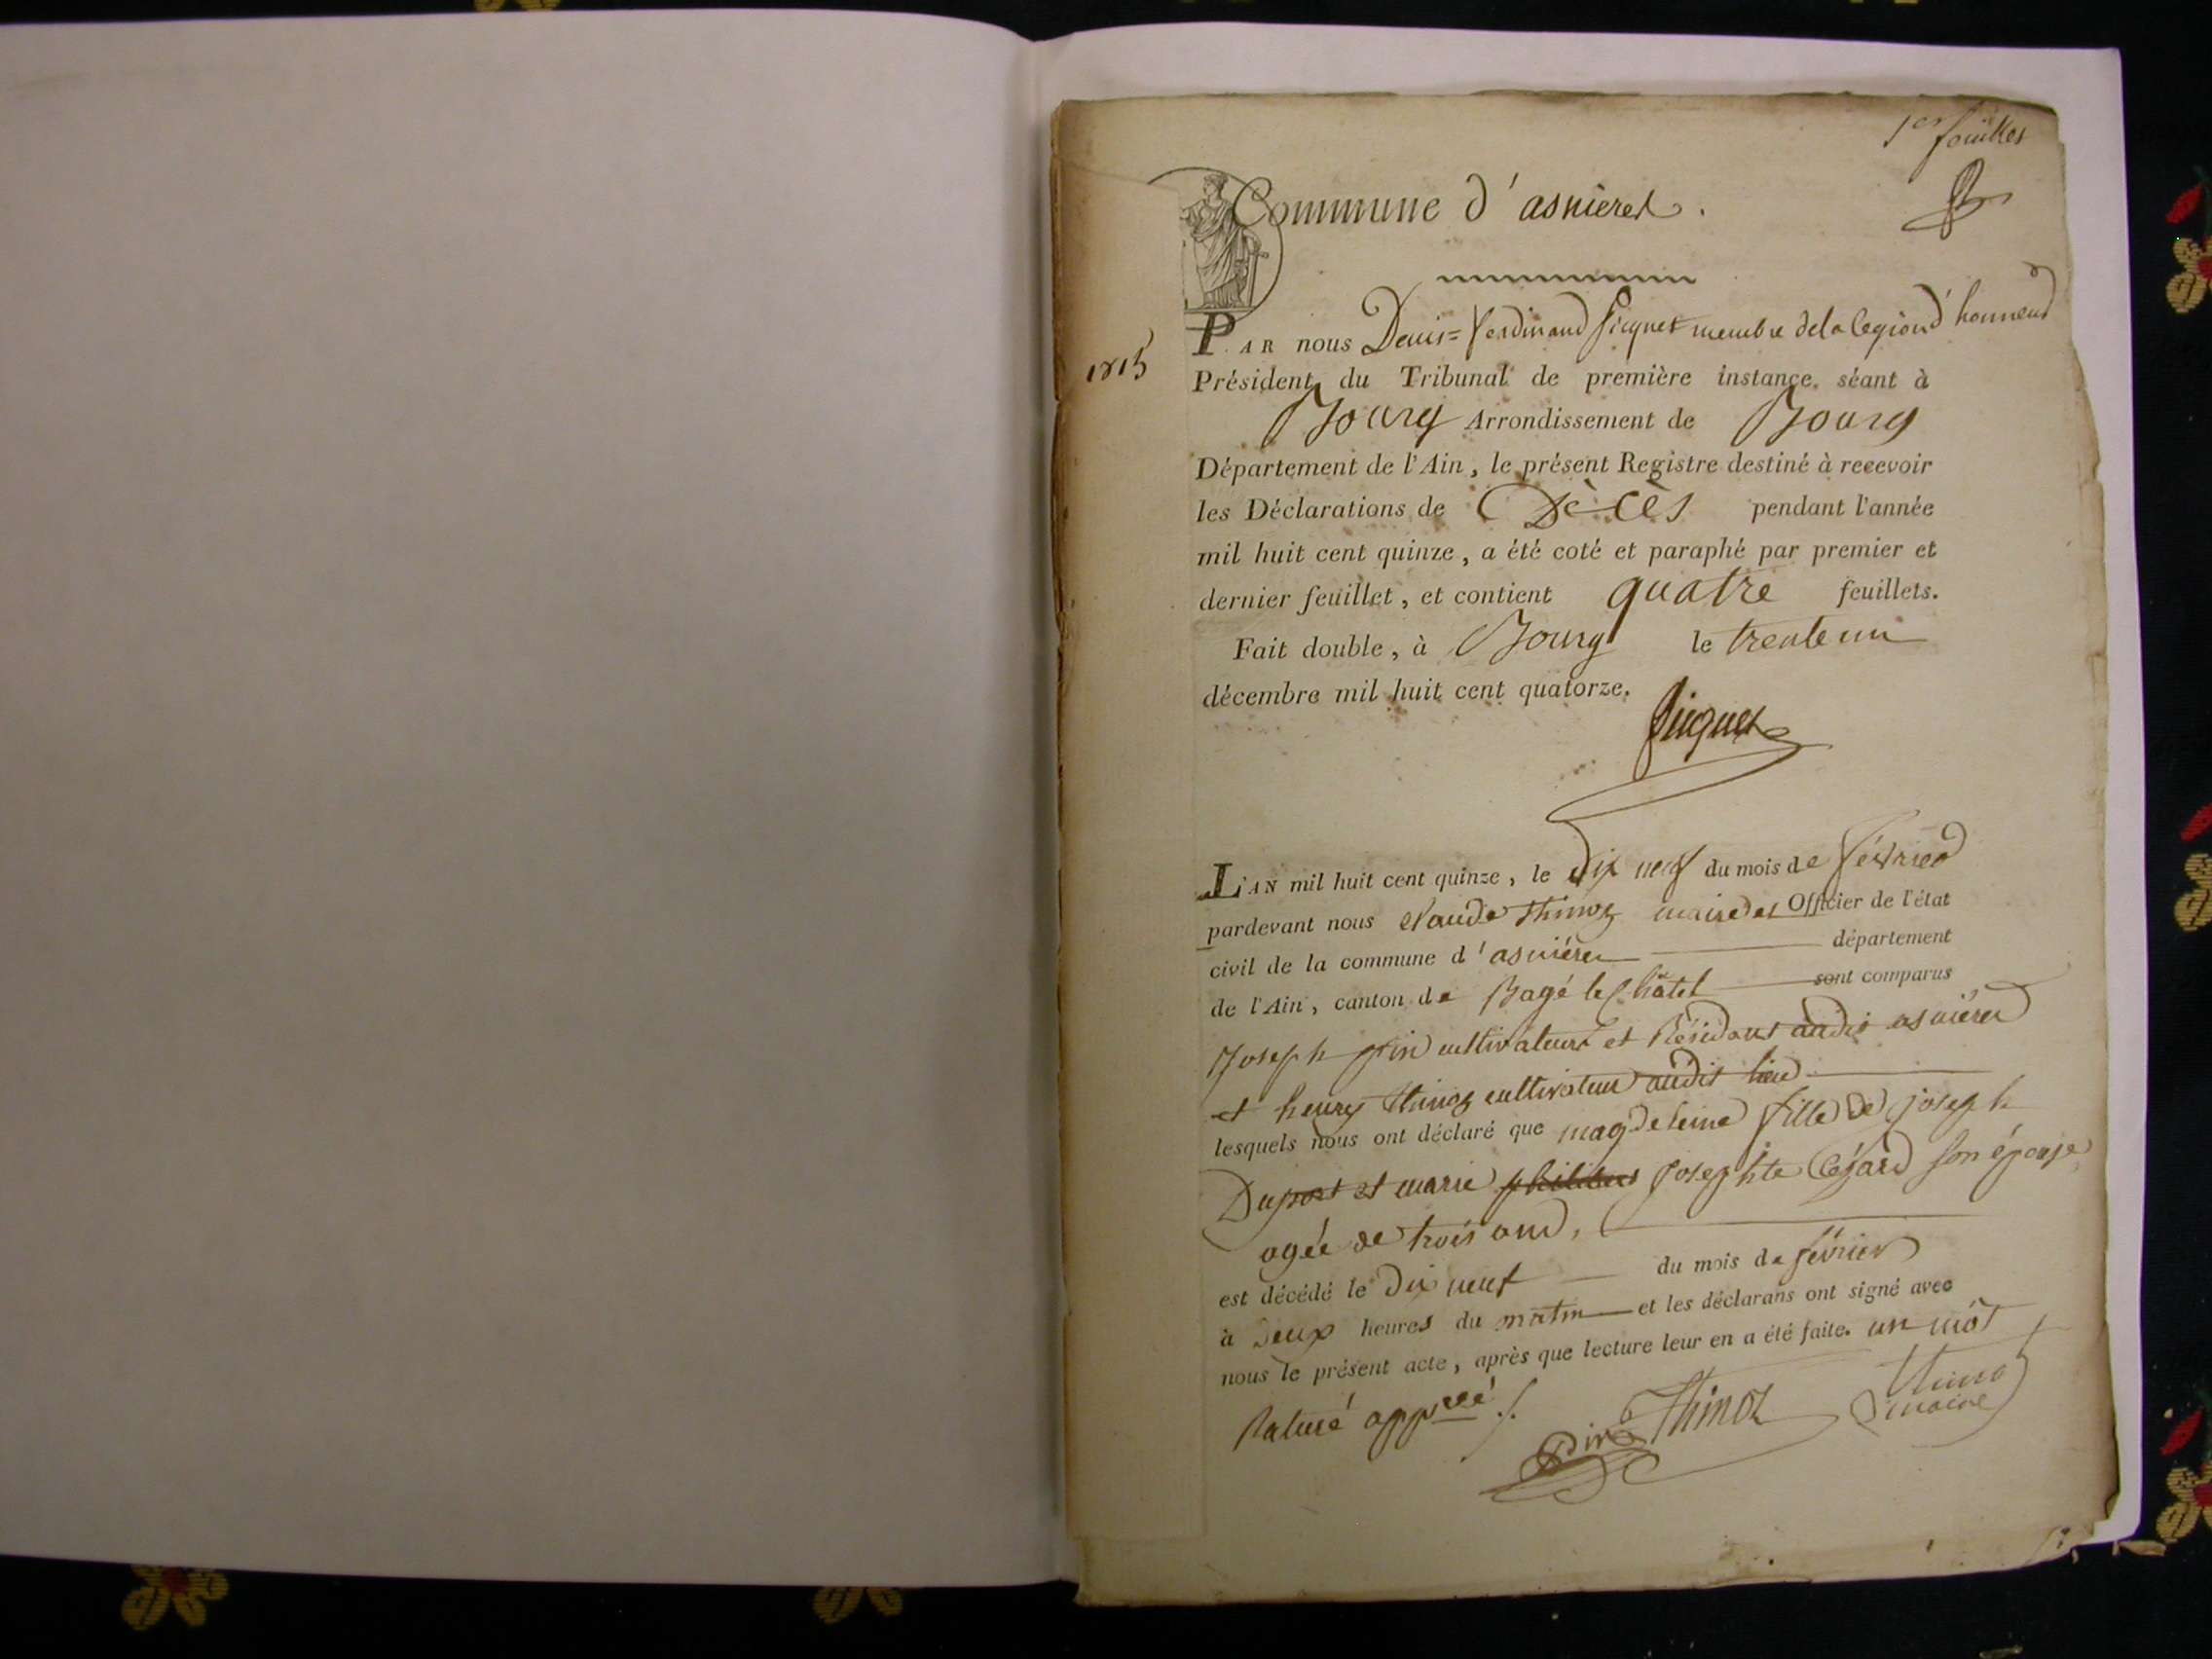 1er feuillet
Commune d'asnieres.
PAR nous Denis=ferdinand Picquet membre de la legion d'honneur
1815
Président du Tribunal de première instance, séant à
Bourg Arrondissement de Bourg
Département de l'Ain, le présent Registre destiné à recevoir
les Déclarations de Décès pendant l'année
mil huit cent quinze, a été coté et paraphé par premier et
dernier feuillet, et contient quatre feuillets.
Fait double, à Bourg le trente un
décembre mil huit cent quatorze.
Picquet
L'AN mil huit cent quinze, le dix neuf du mois de février
pardevant nous Claude Thinoz maire et Officier de l'état
civil de la commune d'asniéres département
de l'Ain, canton de Bagé le Châtel sont comparus
Joseph pin cultivateur et Résidant audit asniéres
et henry thinoz cultivateur audit lieu
lesquels nous ont déclaré que magdeleine fille de joseph
Duport et marie Josephte Cézard son épouse
agée de trois ans,
est décédé le dix neuf du mois de février
à deux heures du matin et les déclarans ont signé avec
nous le présent acte, après que lecture leur en a été faite. un môt
Raturé appvé ./.
Pin Thinoz Thinoz
maire